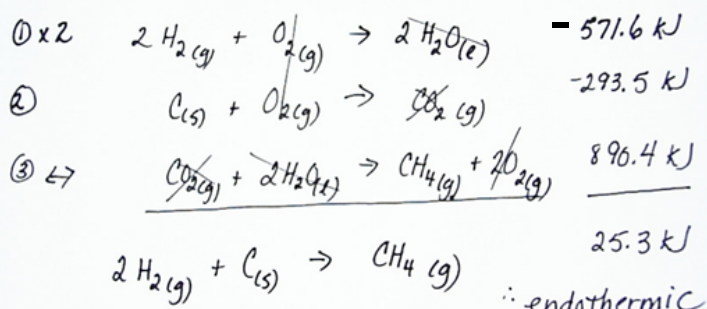 ① x 2 2 H₂(g) + O₂(g) → 2 H₂O(l) - 571.6 kJ
② C(s) + O₂(g) → CO₂ (g) -293.5 kJ
③ ↔ CO₂(g) + 2H₂O(l) → CH₄(g) + 2O₂(g) 890.4 kJ
2 H₂(g) + C(s) → CH₄ (g) 25.3 kJ
∴ endothermic